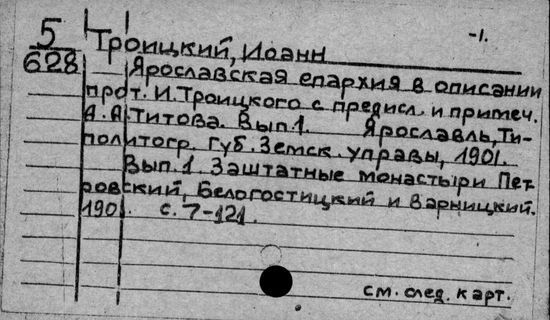 5
628
Троицкий, Иоанн
-1.
Ярославская епархия в описании
прот. И. Троицкого с предисл. и примеч.
А. А. Титова. Вып. 1. Ярославль, Ти-
политогр. Губ. Земск. управы, 1901.
Вып. 1. Заштатные монастыри Пет-
ровский, Белогостицкий и Варницкий.
1901. с. 7-121.
см. след. карт.